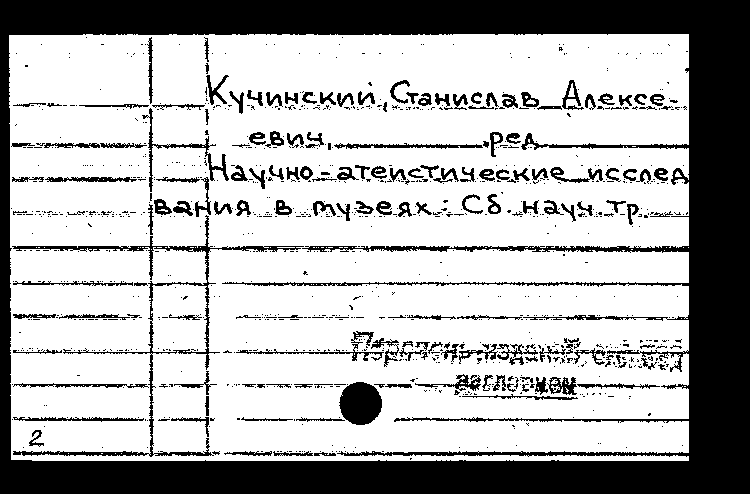 Кучинский, Станислав Алексе-
евич, ред
Научно-атеистические исслед
вания в музеях: Сб. науч. тр.
Перечень изданий см. под
заглавием
2